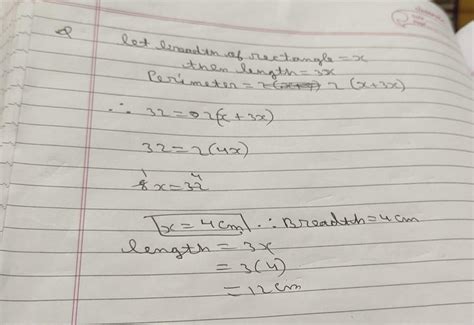 let breadth of rectangle = x
then length = 3x
Perimeter = 2 (x+3x)
∴ 32 = 2(x + 3x)
32 = 2(4x)
8x = 32
1 4
x = 4cm ∴ Breadth = 4 cm
length = 3x
= 3(4)
= 12 cm